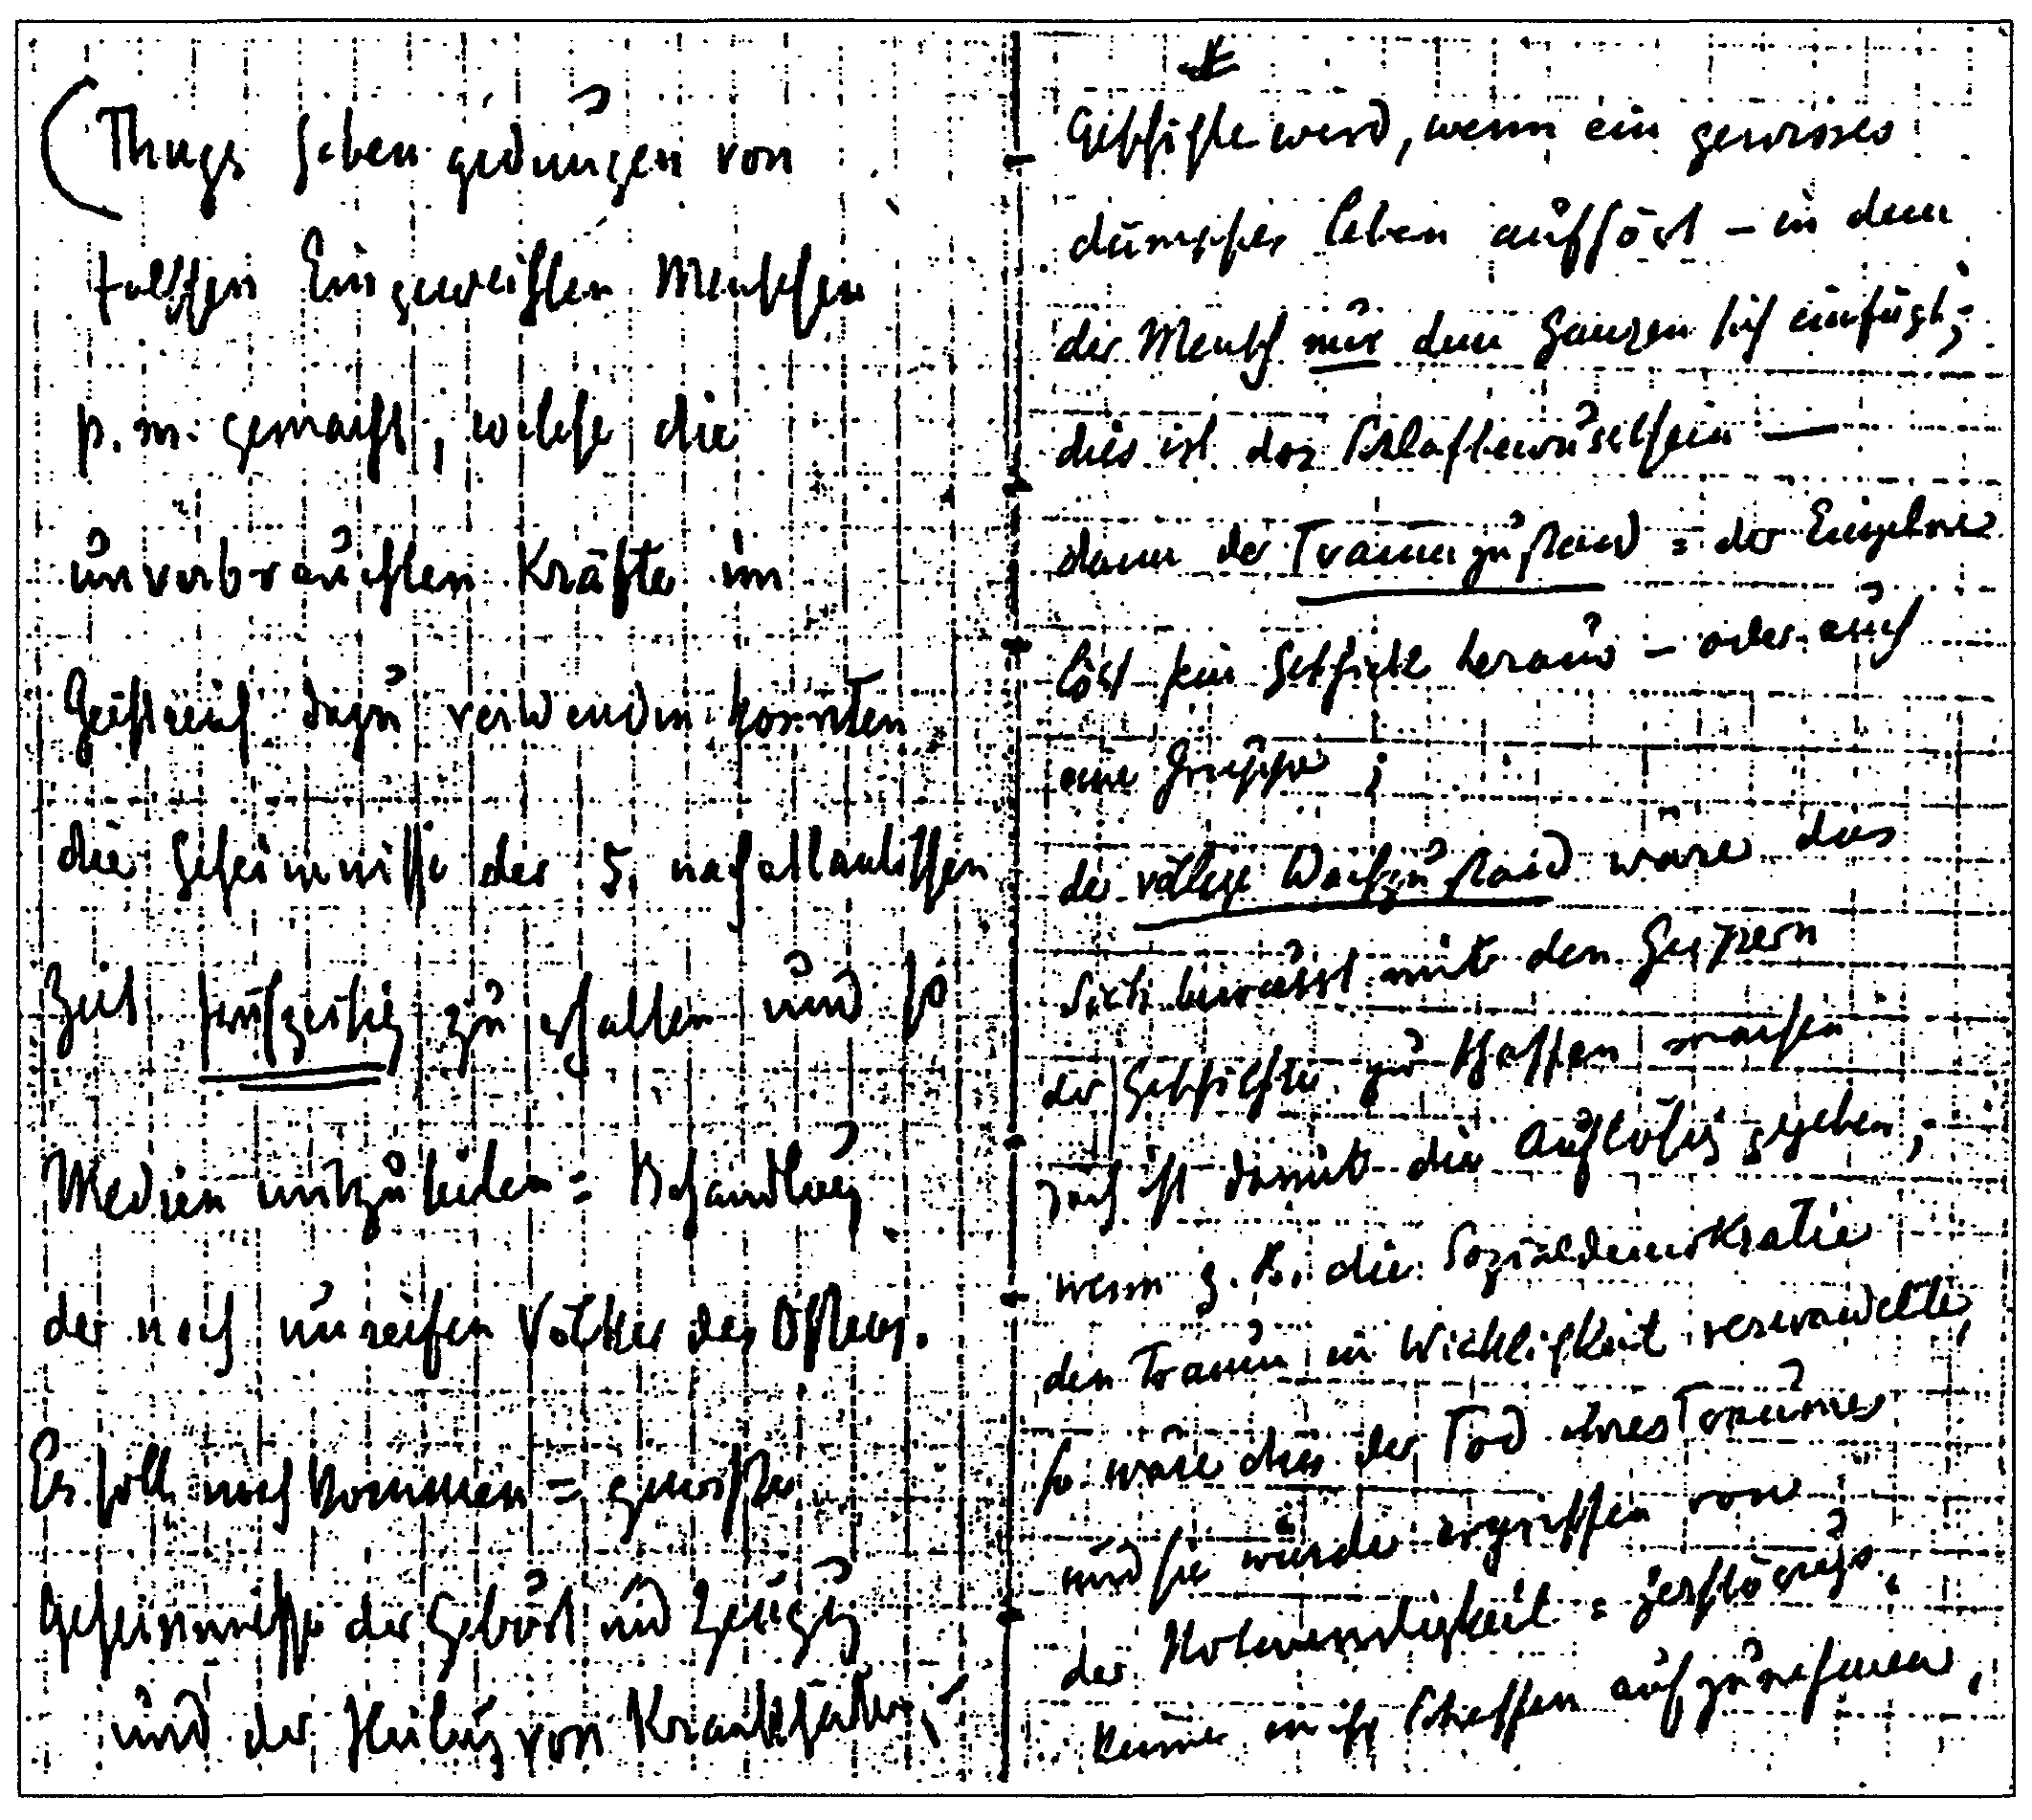 (Thugs haben gedungen von
falschen Eingeweihten Menschen
p. m. gemacht, welche die
unverbrauchten Kräfte im
Geistreich dazu verwenden konnten
die Geheimnisse der 5. nachatlantischen
Zeit frühzeitig zu erhalten und so
Medien auszubilden = Behandlung
der noch unreifen Völker des Ostens.
Es soll noch kommen = gewisse
Geheimnisse der Geburt und Zeugung
und der Heilung von Krankheiten,
Geschichte wird, wenn ein gewisses
dumpfes Leben aufhört – in dem
der Mensch nur dem Ganzen sich einfügt;
dies ist das Schlafbewusstsein —
dann der Traumzustand = der Einzelne
löst sein Geschick heraus – oder auch
eine Gruppe;
der völlige Wachzustand wäre das
Sich bewusst mit den
der Geschichte zu schaffen machen
doch ist damit die Auflösung gegeben;
wenn z. B. die Sozialdemokratie
den Traum in Wirkligkeit verwandelte,
so wäre dies der Tod ihres Traumes
und sie würde ergriffen von
der Notwendigkeit = zerstörungs
Keime in ihr Schaffen aufzunehmen,